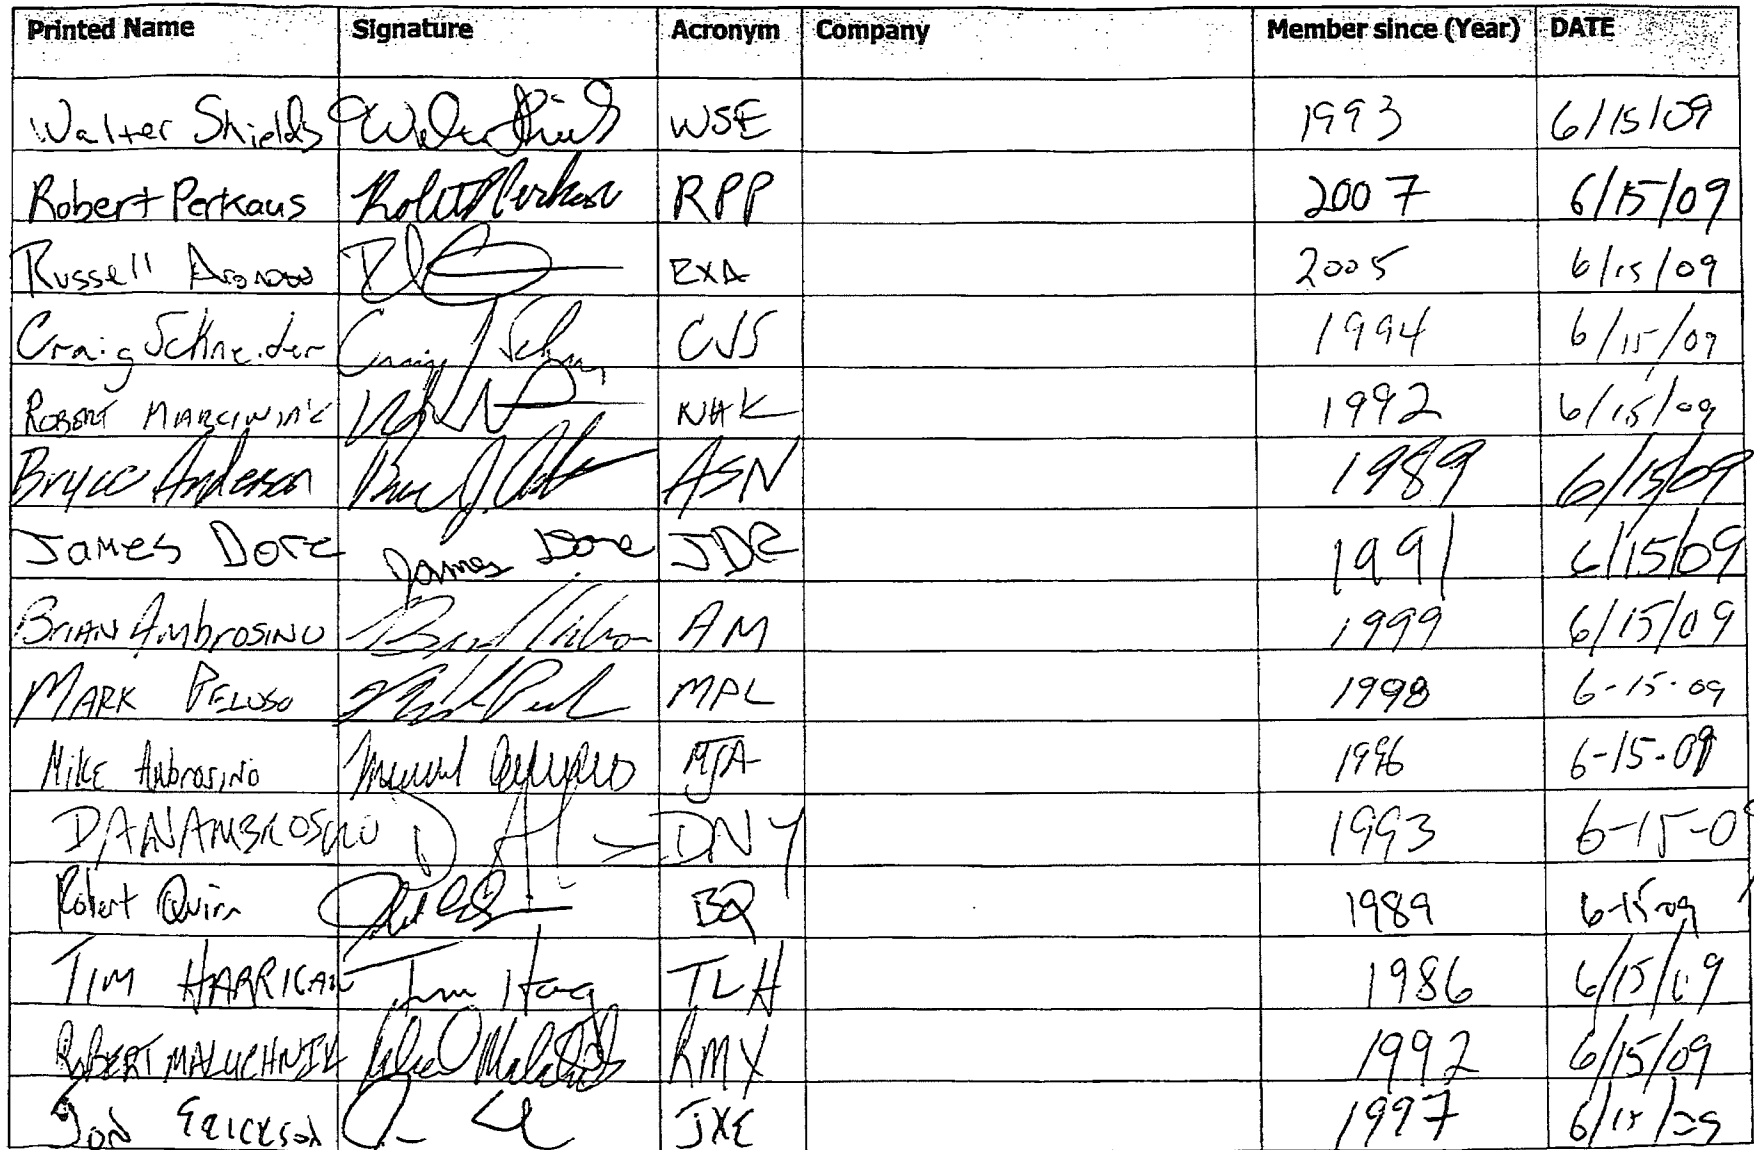 Printed Name Signature Acronym Company Member since (Year) DATE
Walter Shields WSE 1993 6/15/09
Robert Perkaus Robert Perkaus RPP 2007 6/15/09
Russell 2005 6/15/09
Craig Schneider Craig J Schn CJS 1994 6/15/09
ROBERT NHK 1992 6/15/09
Bryce Anderson ASN 1989 6/15/09
James Dore James Dore JDR 1991 6/15/09
BRIAN AMBROSINO AM 1999 6/15/09
MARK PELUSO MPL 1998 6-15-09
MIKE AMBROSINO MJA 1996 6-15-09
DAN AMBROSINO DNY 1993 6-15-09
Robert Quinn BQ 1989 6-15-09
TIM HARRIGAN Tim Harrig TLH 1986 6/15/09
ROBERT MALUCHNIK RMX 1992 6/15/09
JON ERICKSON JXE 1997 6/15/09